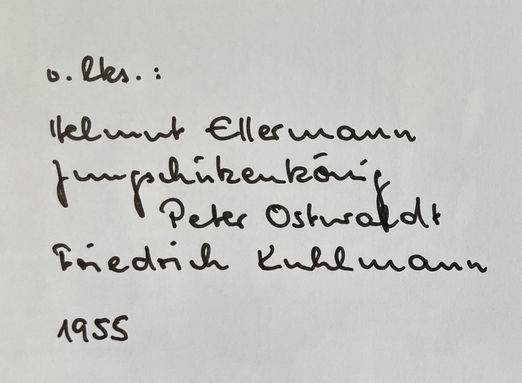 v. lks.:
Helmut Ellermann
Jungschützenkönig
Peter Ostwaldt
Friedrich Kuhlmann
1955